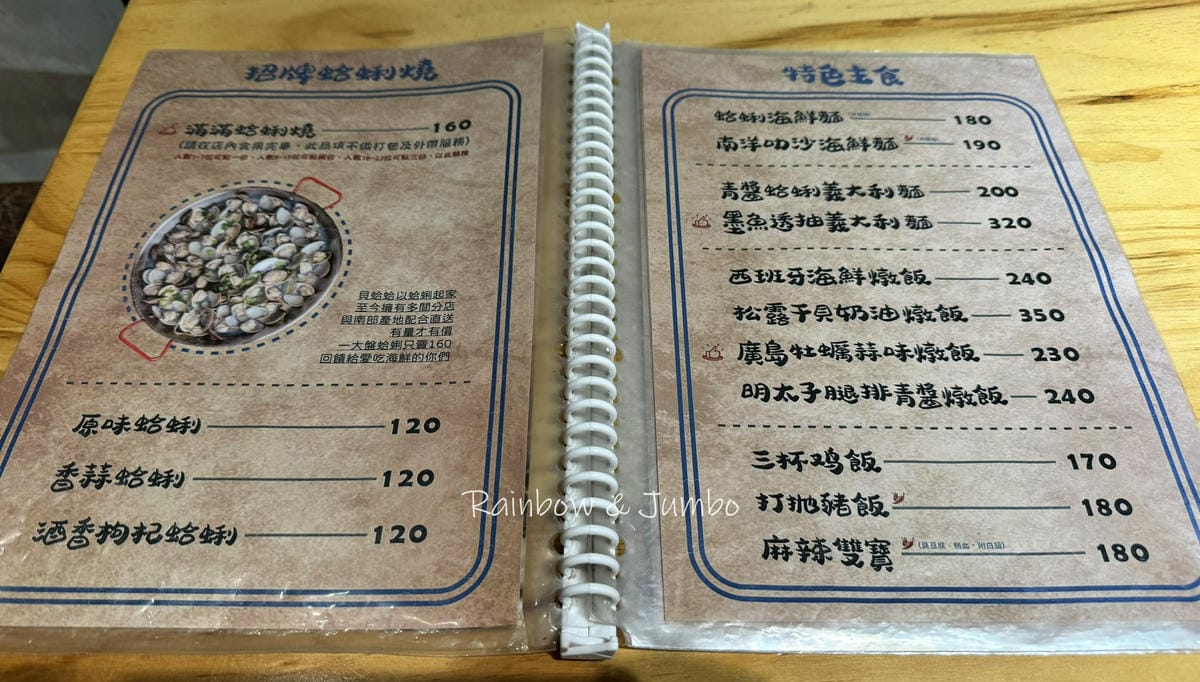 招牌蛤蜊燒
滿滿蛤蜊燒 160
(請在店內食用完畢，此品項不做打包及外帶服務)
貝蛤蛤以蛤蜊起家
至今擁有多間分店
與南部產地配合直送
有量才有價
一大盤蛤蜊只賣160
回饋給愛吃海鮮的你們
原味蛤蜊 120
香蒜蛤蜊 120
酒香枸杞蛤蜊 120
特色主食
蛤蜊海鮮麵 180
南洋叻沙海鮮麵 190
青醬蛤蜊義大利麵 200
墨魚透抽義大利麵 320
西班牙海鮮燉飯 240
松露干貝奶油燉飯 350
廣島牡蠣蒜味燉飯 230
明太子腿排青醬燉飯 240
三杯鸡飯 170
打拋豬飯 180
麻辣雙寶 (臭豆腐、鴨血，附白飯) 180
Rainbow & Jumbo